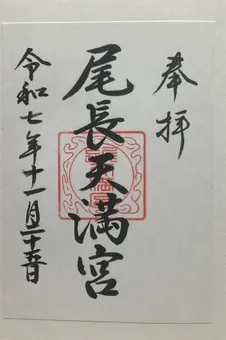 奉拝
尾長天満宮
令和七年十一月二十五日